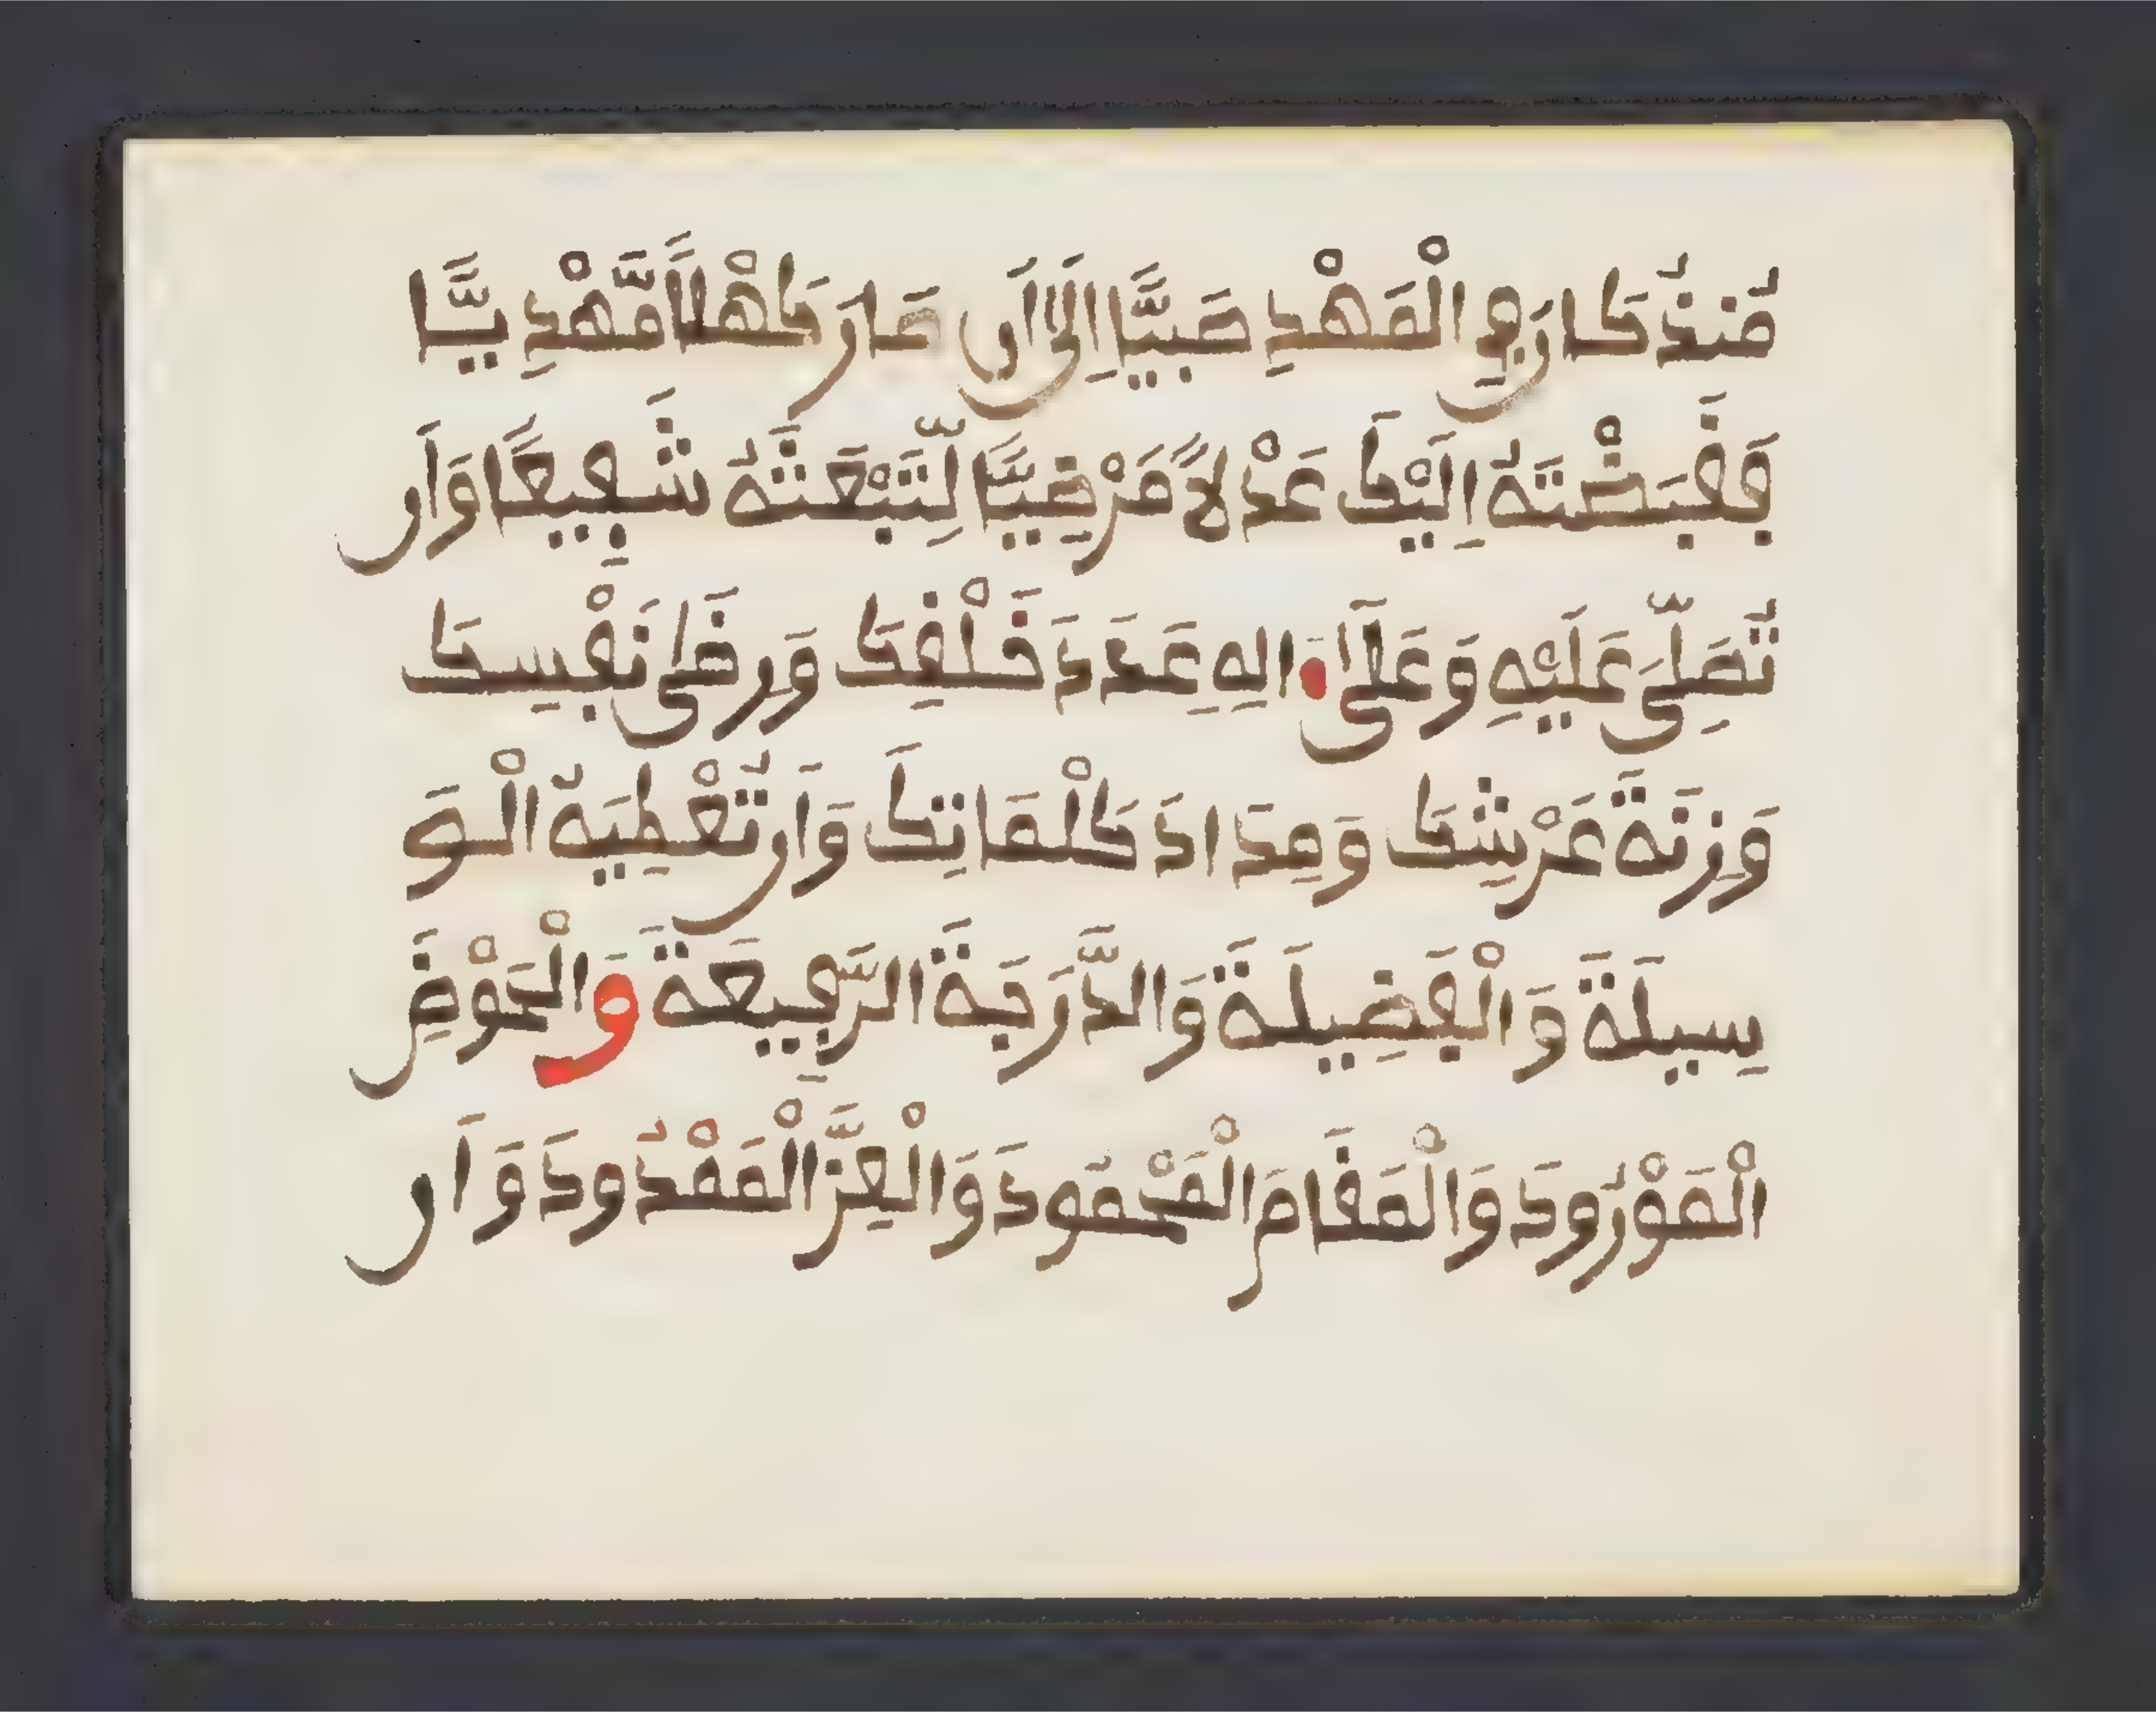 مُنذُ كَانَ فِي الْمَهْدِ صَبِيًّا إِلَىٰ أَن صَارَ كَهْلًا مَّهْدِيًّا
فَقَبَضْتَهُ إِلَيْكَ عَدْلًا مَرْضِيًّا لِّتَبْعَثَهُ شَفِيعًا وَأَن
تُصَلِّيَ عَلَيْهِ وَعَلَىٰ ءَالِهِ عَدَدَ خَلْقِكَ وَرِضَىٰ نَفْسِكَ
وَزِنَةَ عَرْشِكَ وَمِدَادَ كَلْمَاتِكَ وَأَن تُعْطِيَهُ الْوَ
سِيلَةَ وَالْفَضِيلَةَ وَالدَّرَجَةَ الرَّفِيعَةَ وَالْحَوْضَ
الْمَوْرُودَ وَالْمَقَامَ الْمَحْمُودَ وَالْعِزَّ الْمَمْدُودَ وَأَن